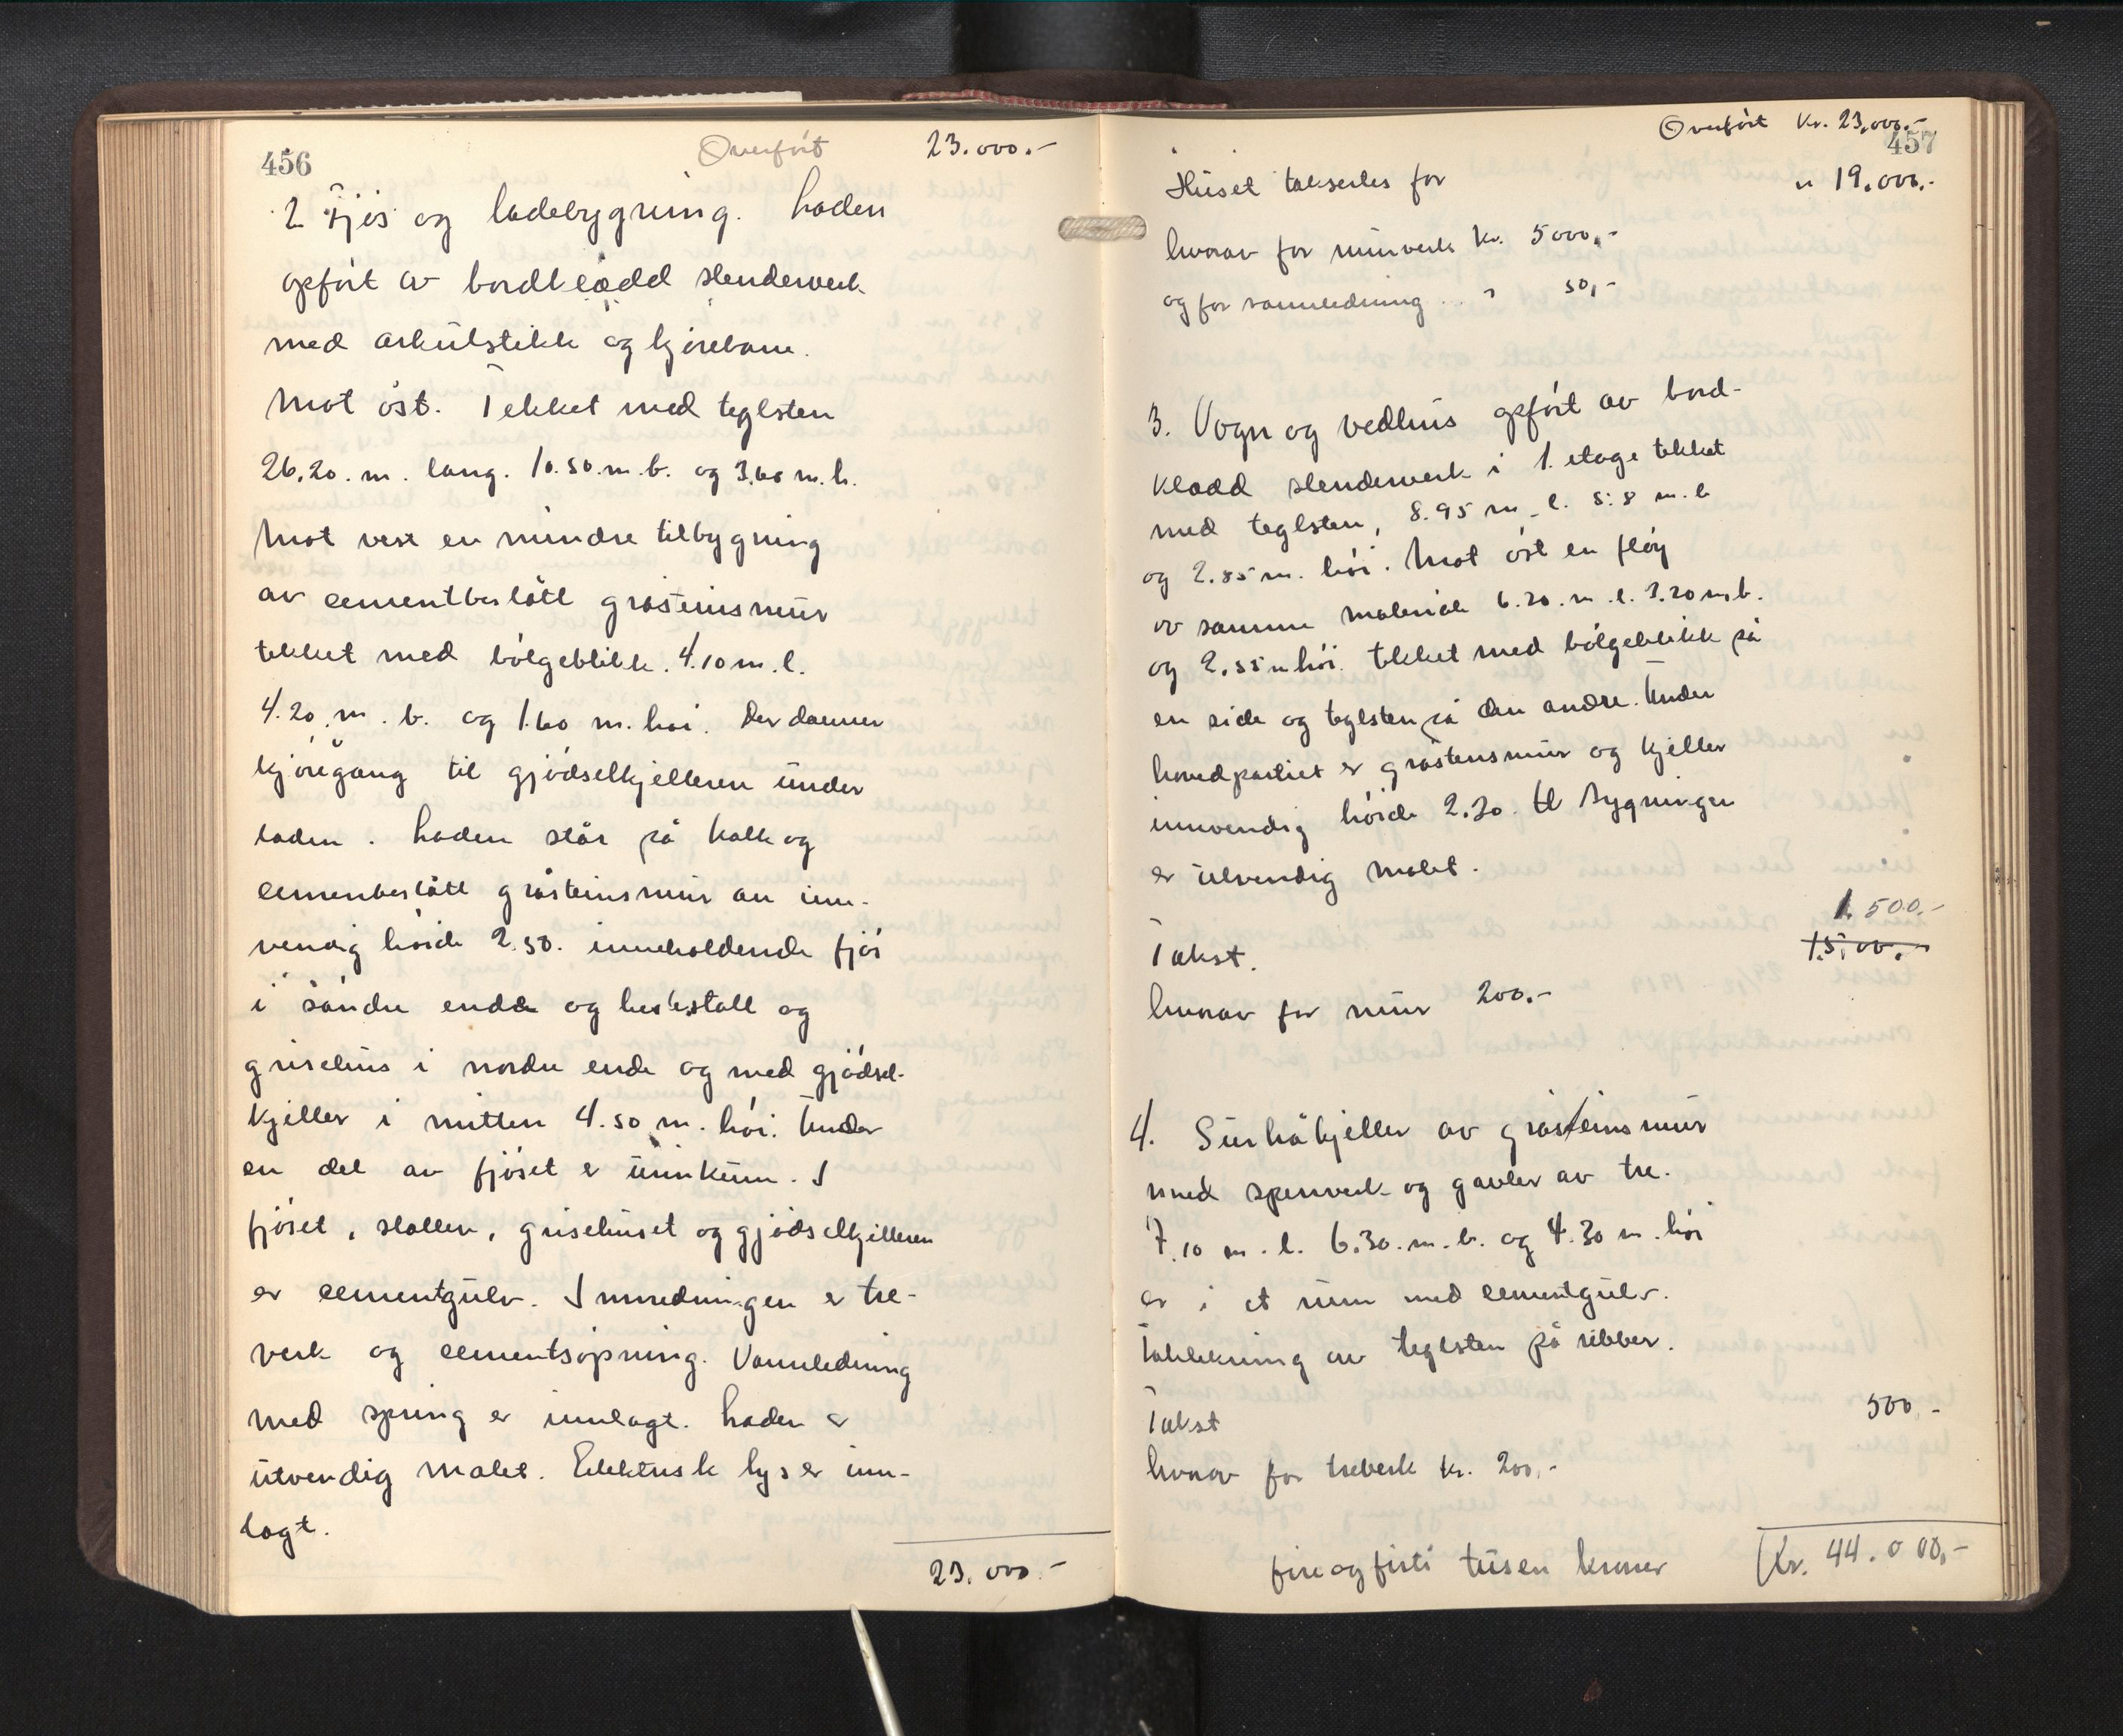 456
Overført 23.000.-
2 Fjøs og ladebygning. Laden
opført av bordkledd stenderverk
med arkutstikk og kjørebane
mot øst. Tekket med teglsten
26.20. m. lang. 10.50. m. b. og 3.60 m. h.
Mot vest en mindre tilbygning
av cementbeslått gråsteinsmur
tekket med bølgeblikk. 4.10 m. l.
4.20. m. b. og 1.60 m. høi. Der danner
kjøregang til gjødselkjelleren under
laden. Laden står på kalk og
cemenbeslått gråsteinsmur av inn-
vendig høide 2.50. inneholdende fjøs
i søndre ende og hestestall og
grisehus i nordre ende og med gjødsel-
kjeller i mitten 4.50 m. høi. Under
en del av fjøset er urinkum. I
fjøset, stallen, grisehuset og gjødselkjelleren
er cementgulv. Innredningen er tre-
verk og cementsøpning. Vannledning
med spring er innlagt. Laden er
utvendig malet. Elektrisk lys er inn-
lagt.
23.000.-
Overført Kr. 23.000.-
457
Huset takseres for " 19.000.-
hvorav for murverk Kr. 5000.-
og for vannledning .. " 50,-
3. Vogn og vedhus opført av bord-
kledd stenderverk i 1. etage tekket
med teglsten, 8.95 m. l. 5.8 m. b
og 2.85 m. høi. Mot øst en fløy
av samme materiale 6.20. m. l. 3.20 m. b.
og 2.55 m høi. tekket med bølgeblikk på
en side og teglsten på den andre. Under
hovedpartiet er gråstensmur og kjeller
innvendig høide 2.30. tl bygningen
er utvendig malet.
1.500.-
Takst. 1.5.00.-
hvorav for mur 200.-
4. Surhåkjeller av gråsteinsmur
med sperrverk og gavler av tre.
7.10 m. l. 6.30. m. b. og 4.30 m. høi
er i et rum med cementgulv.
Taktekning av teglsten på ribber.
Takst 500.-
hvorav for treverk kr. 200.-
fire og førti tusen kroner Kr. 44.000,-